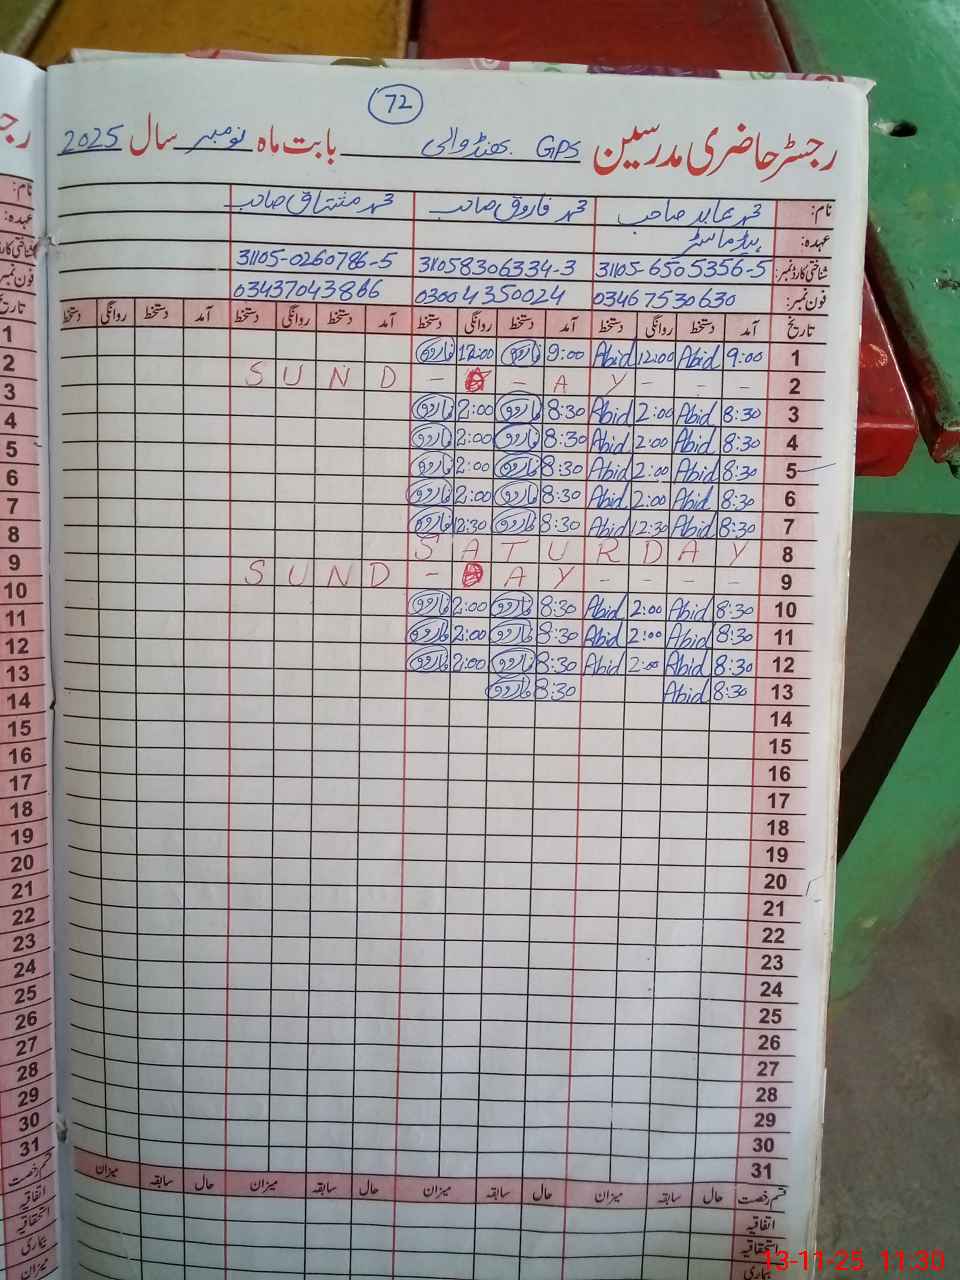 72
رجسٹر حاضری مدرسین GPS بھنڈوالی بابت ماہ نومبر سال 2025
نام: محمد عابد صاحب محمد فاروق صاحب محمد مشتاق صاحب
عہدہ: ہیڈ ماسٹر
شناختی کارڈ نمبر: 31105-6505356-5 31058306334-3 31105-0260786-5
فون نمبر: 03467530630 03004350024 03437043866
تاریخ آمد دستخط روانگی دستخط آمد دستخط روانگی دستخط آمد دستخط روانگی دستخط آمد دستخط روانگی دستخط
1 9:00 Abid 12:00 Abid 9:00 فاروق 12:00 فاروق
2 S U N D - - A Y - - -
3 8:30 Abid 2:00 Abid 8:30 فاروق 2:00 فاروق
4 8:30 Abid 2:00 Abid 8:30 فاروق 2:00 فاروق
5 8:30 Abid 2:00 Abid 8:30 فاروق 2:00 فاروق
6 8:30 Abid 2:00 Abid 8:30 فاروق 2:00 فاروق
7 8:30 Abid 12:30 Abid 8:30 فاروق 12:30 فاروق
8 S A T U R D A Y
9 S U N D - A Y - - - -
10 8:30 Abid 2:00 Abid 8:30 فاروق 2:00 فاروق
11 8:30 Abid 2:00 Abid 8:30 فاروق 2:00 فاروق
12 8:30 Abid 2:00 Abid 8:30 فاروق 2:00 فاروق
13 8:30 Abid 8:30 فاروق
14
15
16
17
18
19
20
21
22
23
24
25
26
27
28
29
30
31
قسم رخصت حال سابقہ میزان حال سابقہ میزان حال سابقہ میزان حال سابقہ میزان
اتفاقیہ
استحقاقیہ
بیماری
رجـ
نام:
عہدہ:
شناختی کارڈ
فون نمبر
تاریخ
1
2
3
4
5
6
7
8
9
10
11
12
13
14
15
16
17
18
19
20
21
22
23
24
25
26
27
28
29
30
31
قسم رخصت
اتفاقیہ
استحقاقیہ
بیماری
میزان
13-11-25 11:30